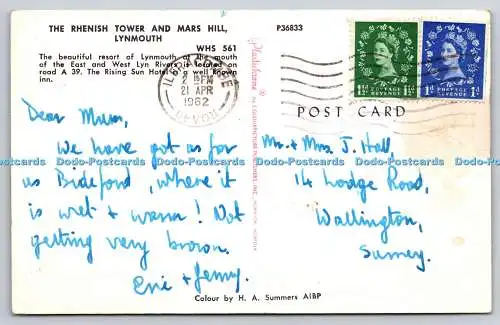 THE RHENISH TOWER AND MARS HILL,
LYNMOUTH
WHS 561
The beautiful resort of Lynmouth at the mouth
of the East and West Lyn Rivers is located on
road A 39. The Rising Sun Hotel is a well known
inn.
P36833
2 15 PM
21 APR
1962
DEVON
POSTAGE
REVENUE
1½D 1½D
POSTAGE
REVENUE
1D 1D
POST CARD
Dear Mum,
We have got as far
as Bideford, where it
is wet + warm! Not
getting very brown.
Eric + Jenny.
Mr. + Mrs. J. Hall,
14 Lodge Road,
Wallington,
Surrey.
Plastichrome
Colour by H. A. Summers AIBP
Dodo-Postcards Dodo-Postcards Dodo-Postcards Dodo-Postcards Dodo-Postcards